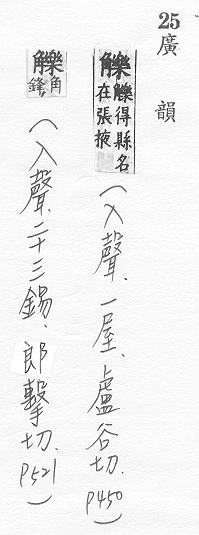 25 廣韻
觻觻得縣名在張掖(入聲、一屋、盧谷切、P450)
觻角鋒(入聲、二十三錫、郎擊切、P521)